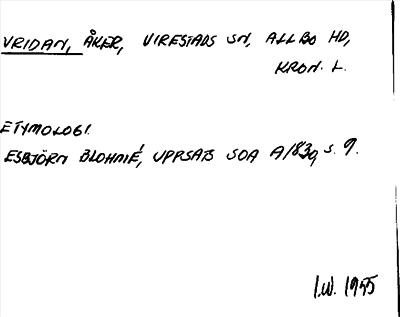 VRIDAN, ÅKER, VIRESTADS SN, ALLBO HD,
KRON. L.
ETYMOLOGI.
ESBJÖRN BLOHMÉ, UPPSATS SOA A/839 s. 9.
I.W. 1955